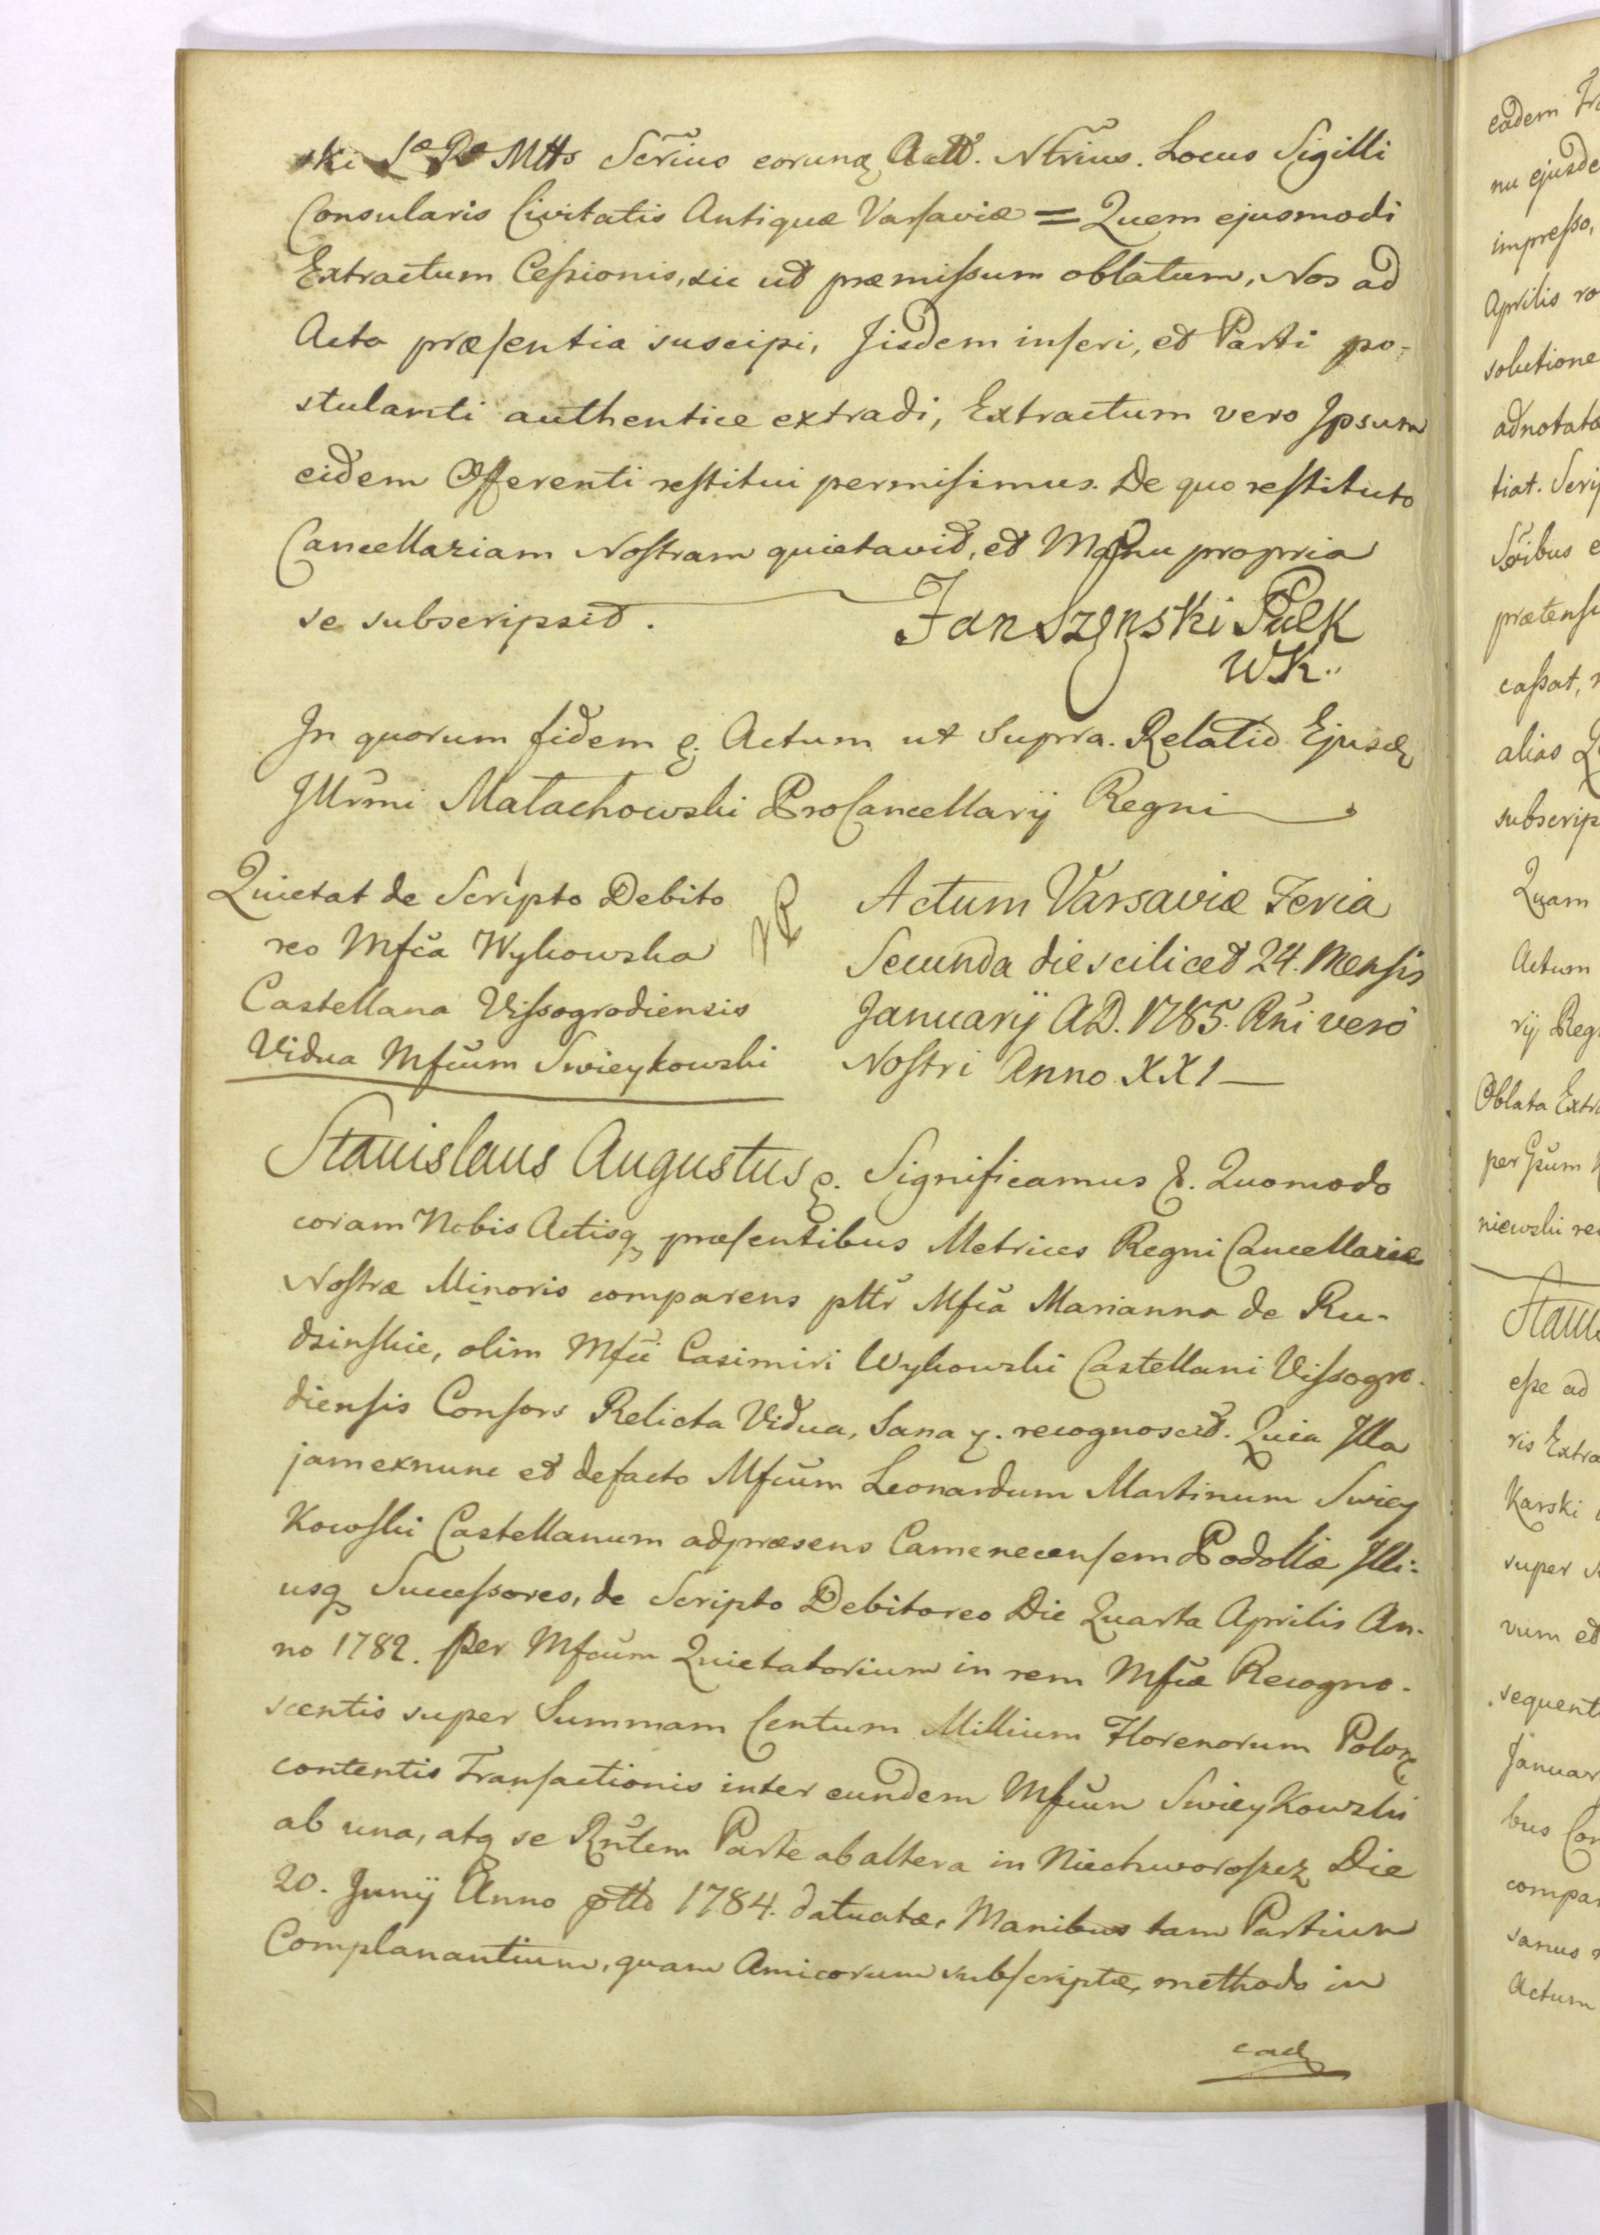 ski Sæ Ræ Mtts Scrius eorunq Actt. Ntrius. Locus Sigilli
Consularis Civitatis Antiquæ Varsaviæ = Quem ejusmodi
Extractum Cessionis, sic ut præmissum oblatum, Nos ad
Acta præsentia suscipi, Jisdem inseri, et Parti po-
stulanti authentice extradi, Extractum vero Ipsum
eidem Offerenti restitui permisimus. De quo restituto
Cancellariam Nostram quietavit, et Manu propria
se subscripsit. Jan Szynski Pulk
WK..
In quorum fidem &. Actum ut Supra. Relatio Ejusd
Jllrmi Małachowski ProCancellarij Regni
Quietat de Scripto Debito
reo Mfca Wykowska
Castellana Vissogrodiensis
Vidua Mfcum Swieykowski
Actum Varsaviæ Feria
Secunda die scilicet 24. Mensis
Januarij AD. 1785. Rni vero
Nostri Anno XXI —
Stanislaus Augustus &. Significamus &. Quomodo
coram Nobis Actisq præsentibus Metrices Regni Cancellariæ
Nostræ Minoris comparens pttr Mfca Marianna de Ru-
dzinskie, olim Mfci Casimiri Wykowski Castellani Vissogro-
diensis Consors Relicta Vidua, Sana &. recognoscit. Quia Illa
jam exnunc et defacto Mfcum Leonardum Martinum Swiey
Kowski Castellanum adpræsens Camenecensem Podoliæ Illi-
usq Successores, de Scripto Debitoreo Die Quarta Aprilis An-
no 1782. per Mfcum Quietatorium in rem Mfcæ Recogno-
scentis super Summam Centum Millium Florenorum Polon
contentis Transactionis inter eundem Mfcum SwieyKowski
ab una, atq se Rntem Parte ab altera in Niechworoszcz Die
20. Junij Anno ptto 1784. datuatæ, Manibus tam Partium
Complanantium, quam Amicorum subscriptæ, methodo in
ead
eadem
nu ejusde
impresso,
Aprilis
solutione
adnotata
tiat.
prætens
cassat,
alias
subscrip
Quam
Actum
rij Reg
Oblata Extr
per
niewski
Stani
esse ad
ris Extra
Karski
super
vum et
sequent
Januar
bus Con
compar
sanus
Actum